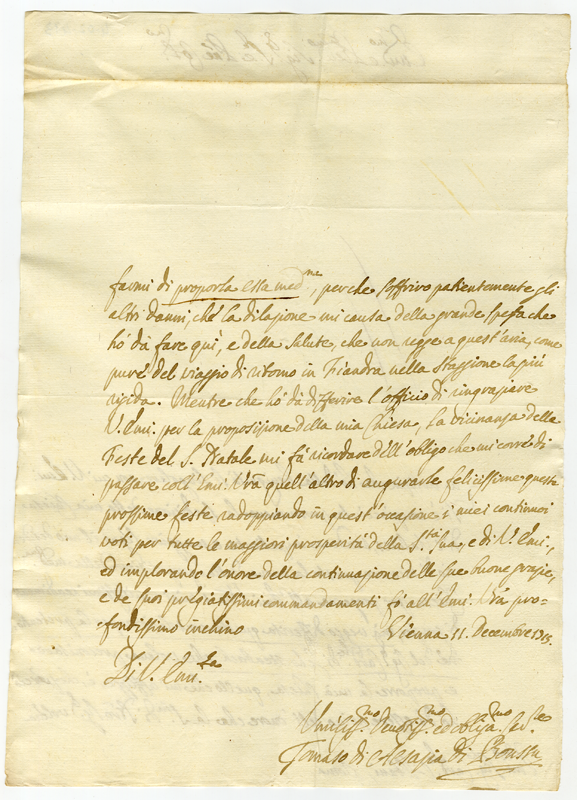 farmi di proporla essa med.ne, perche soffrivo patientemente gli
altri danni, ché la dilazione mi causa della grande spesa che
hó dá fare quì, e della salute, che non regge a quest'aria, come
puré del viaggio di ritorno in Fiandra nella staggione la più
rigida. Mentre che hó dá differire l'officio di ringraziare
V. Emi. per la proposizione della mia Chiesa, la vicinanza delle
Feste del S. Natale mi fá ricordare déll'obligo che mi corré di
passare coll'Emi. Vra quell'altro di augurarle felicissime queste
prossime feste radoppiando in quest'occasione i miei continoi
voti per tutte le maggiori prosperitá della S.tta Sua, e di V. Emi.,
ed implorando l'onore della continuazione delle sue buone grazie,
e de suoi pregiatissimi commandamenti fó all'Emi. Vra pro-
fondissimo inchino Vienna 11. Decembre 1713.
Di V. Em.za
Umiliss.mo Devotiss.mo ed obligs.mo ser.re
Tomaso di Alsazia di Boussu